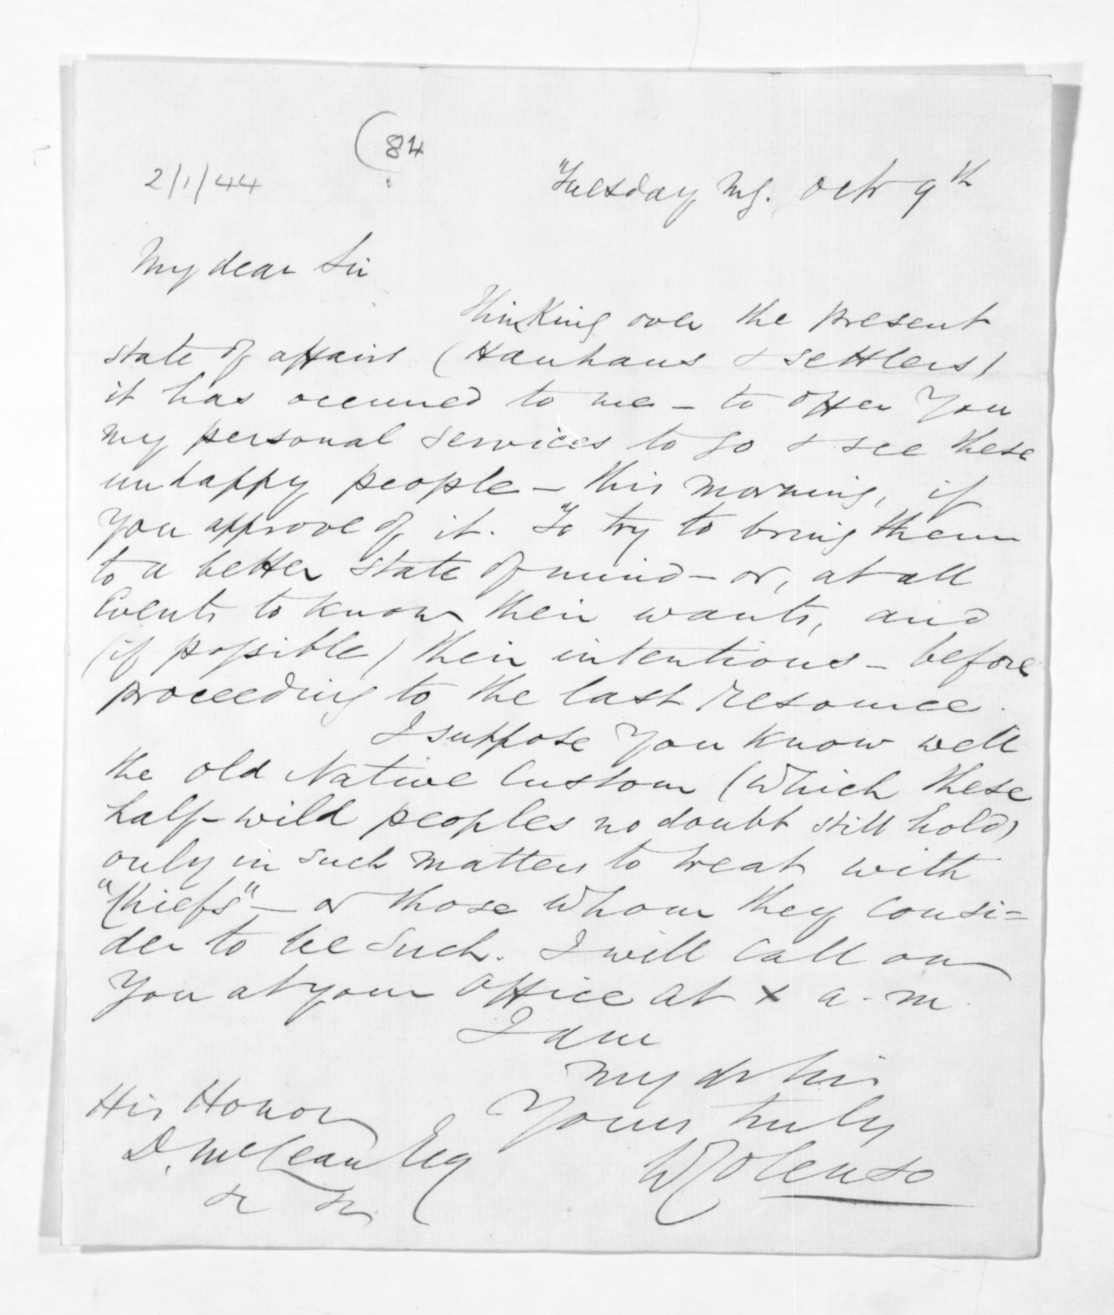 (84
2/1/44
Tuesday Mg. Octr 9th
My dear Sir
Thinking over the present
state of affairs (Hauhaus & settlers)
it has occurred to me – to offer you
my personal services to go & see these
unhappy people – this morning, if
you approve of it. To try to bring them
to a better state of mind – or, at all
events to know their wants, and
(if possible) their intentions – before
proceeding to the last resource.
I suppose you know well
the old Native Custom (which these
half-wild peoples no doubt still hold)
only in such matters to treat with
"Chiefs" – or those whom they consi=
der to be such. I will call on
you at your office at x a.m.
I am
My dr Sir
Yours truly
W Colenso
His Honor
D. McLean Esq
&c &c